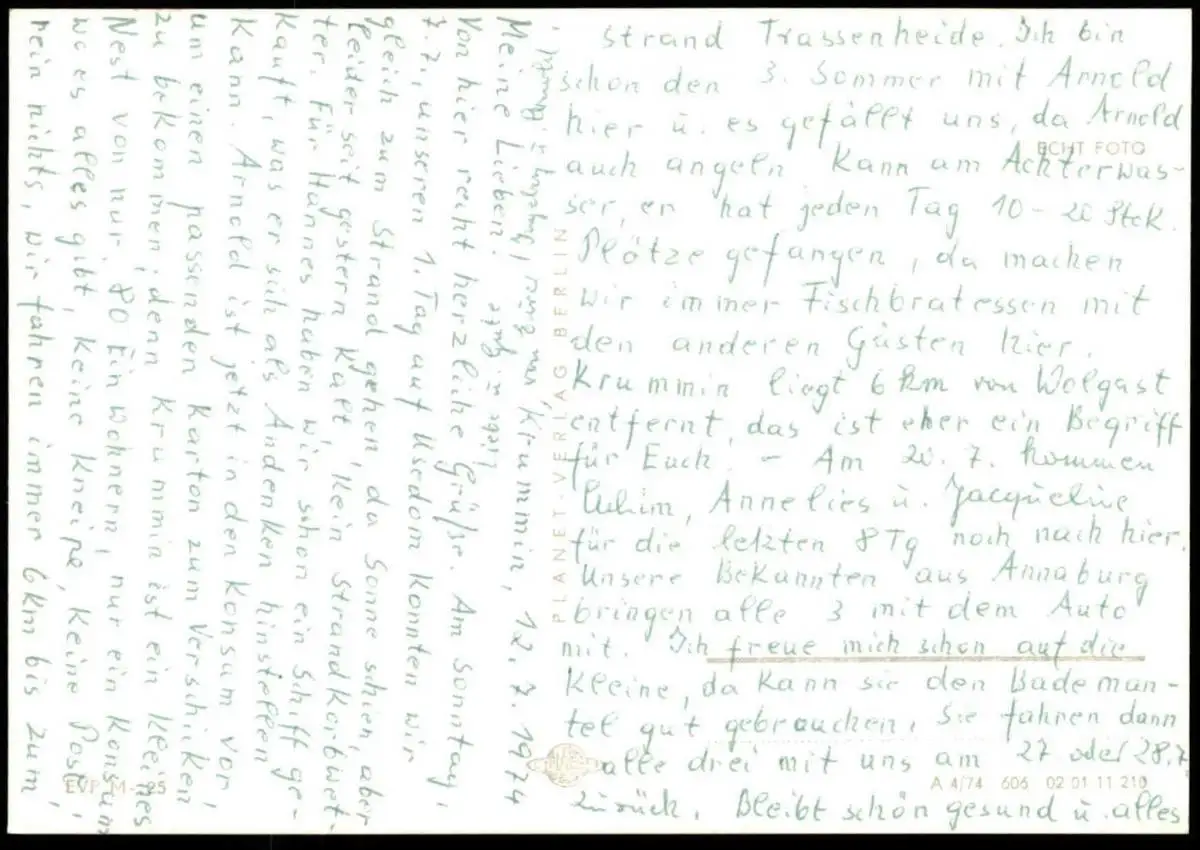 Krummin, 12.7.1974
Meine Lieben!
Von hier recht herzliche Grüße. Am Sonntag,
7.7., unseren 1. Tag auf Usedom konnten wir
gleich zum Strand gehen, da Sonne schien, aber
leider seit gestern kalt, kein Strandkorbwet-
ter. Für Hannes haben wir schon ein Schiff ge-
kauft, was er sich als Andenken hinstellen
kann. Arnold ist jetzt in den Konsum vor,
um einen passenden Karton zum Verschicken
zu bekommen; denn Krummin ist ein kleines
Nest von nur 80 Einwohnern, nur ein Konsum
wo es alles gibt, keine Kneipe, keine Post,
rein nichts, wir fahren immer 6km bis zum
Strand Trassenheide. Ich bin
schon den 3. Sommer mit Arnold
hier u. es gefällt uns, da Arnold
auch angeln kann am Achterwas-
ser, er hat jeden Tag 10-20 Stck.
Plötze gefangen, da machen
wir immer Fischbratessen mit
den anderen Gästen hier.
Krummin liegt 6 km von Wolgast
entfernt, das ist eher ein Begriff
für Euch. - Am 20. 7. kommen
Achim, Annelies u. Jacqueline
für die letzten 8 Tg noch nach hier.
Unsere Bekannten aus Annaburg
bringen alle 3 mit dem Auto
mit. Ich freue mich schon auf die
Kleine, da kann sie den Bademan-
tel gut gebrauchen. Sie fahren dann
alle drei mit uns am 27 oder 28.7.
zurück. Bleibt schön gesund u. alles
ECHT FOTO
PLANET-VERLAG BERLIN
EVP M -,25
A 4/74 606 02 01 11 210